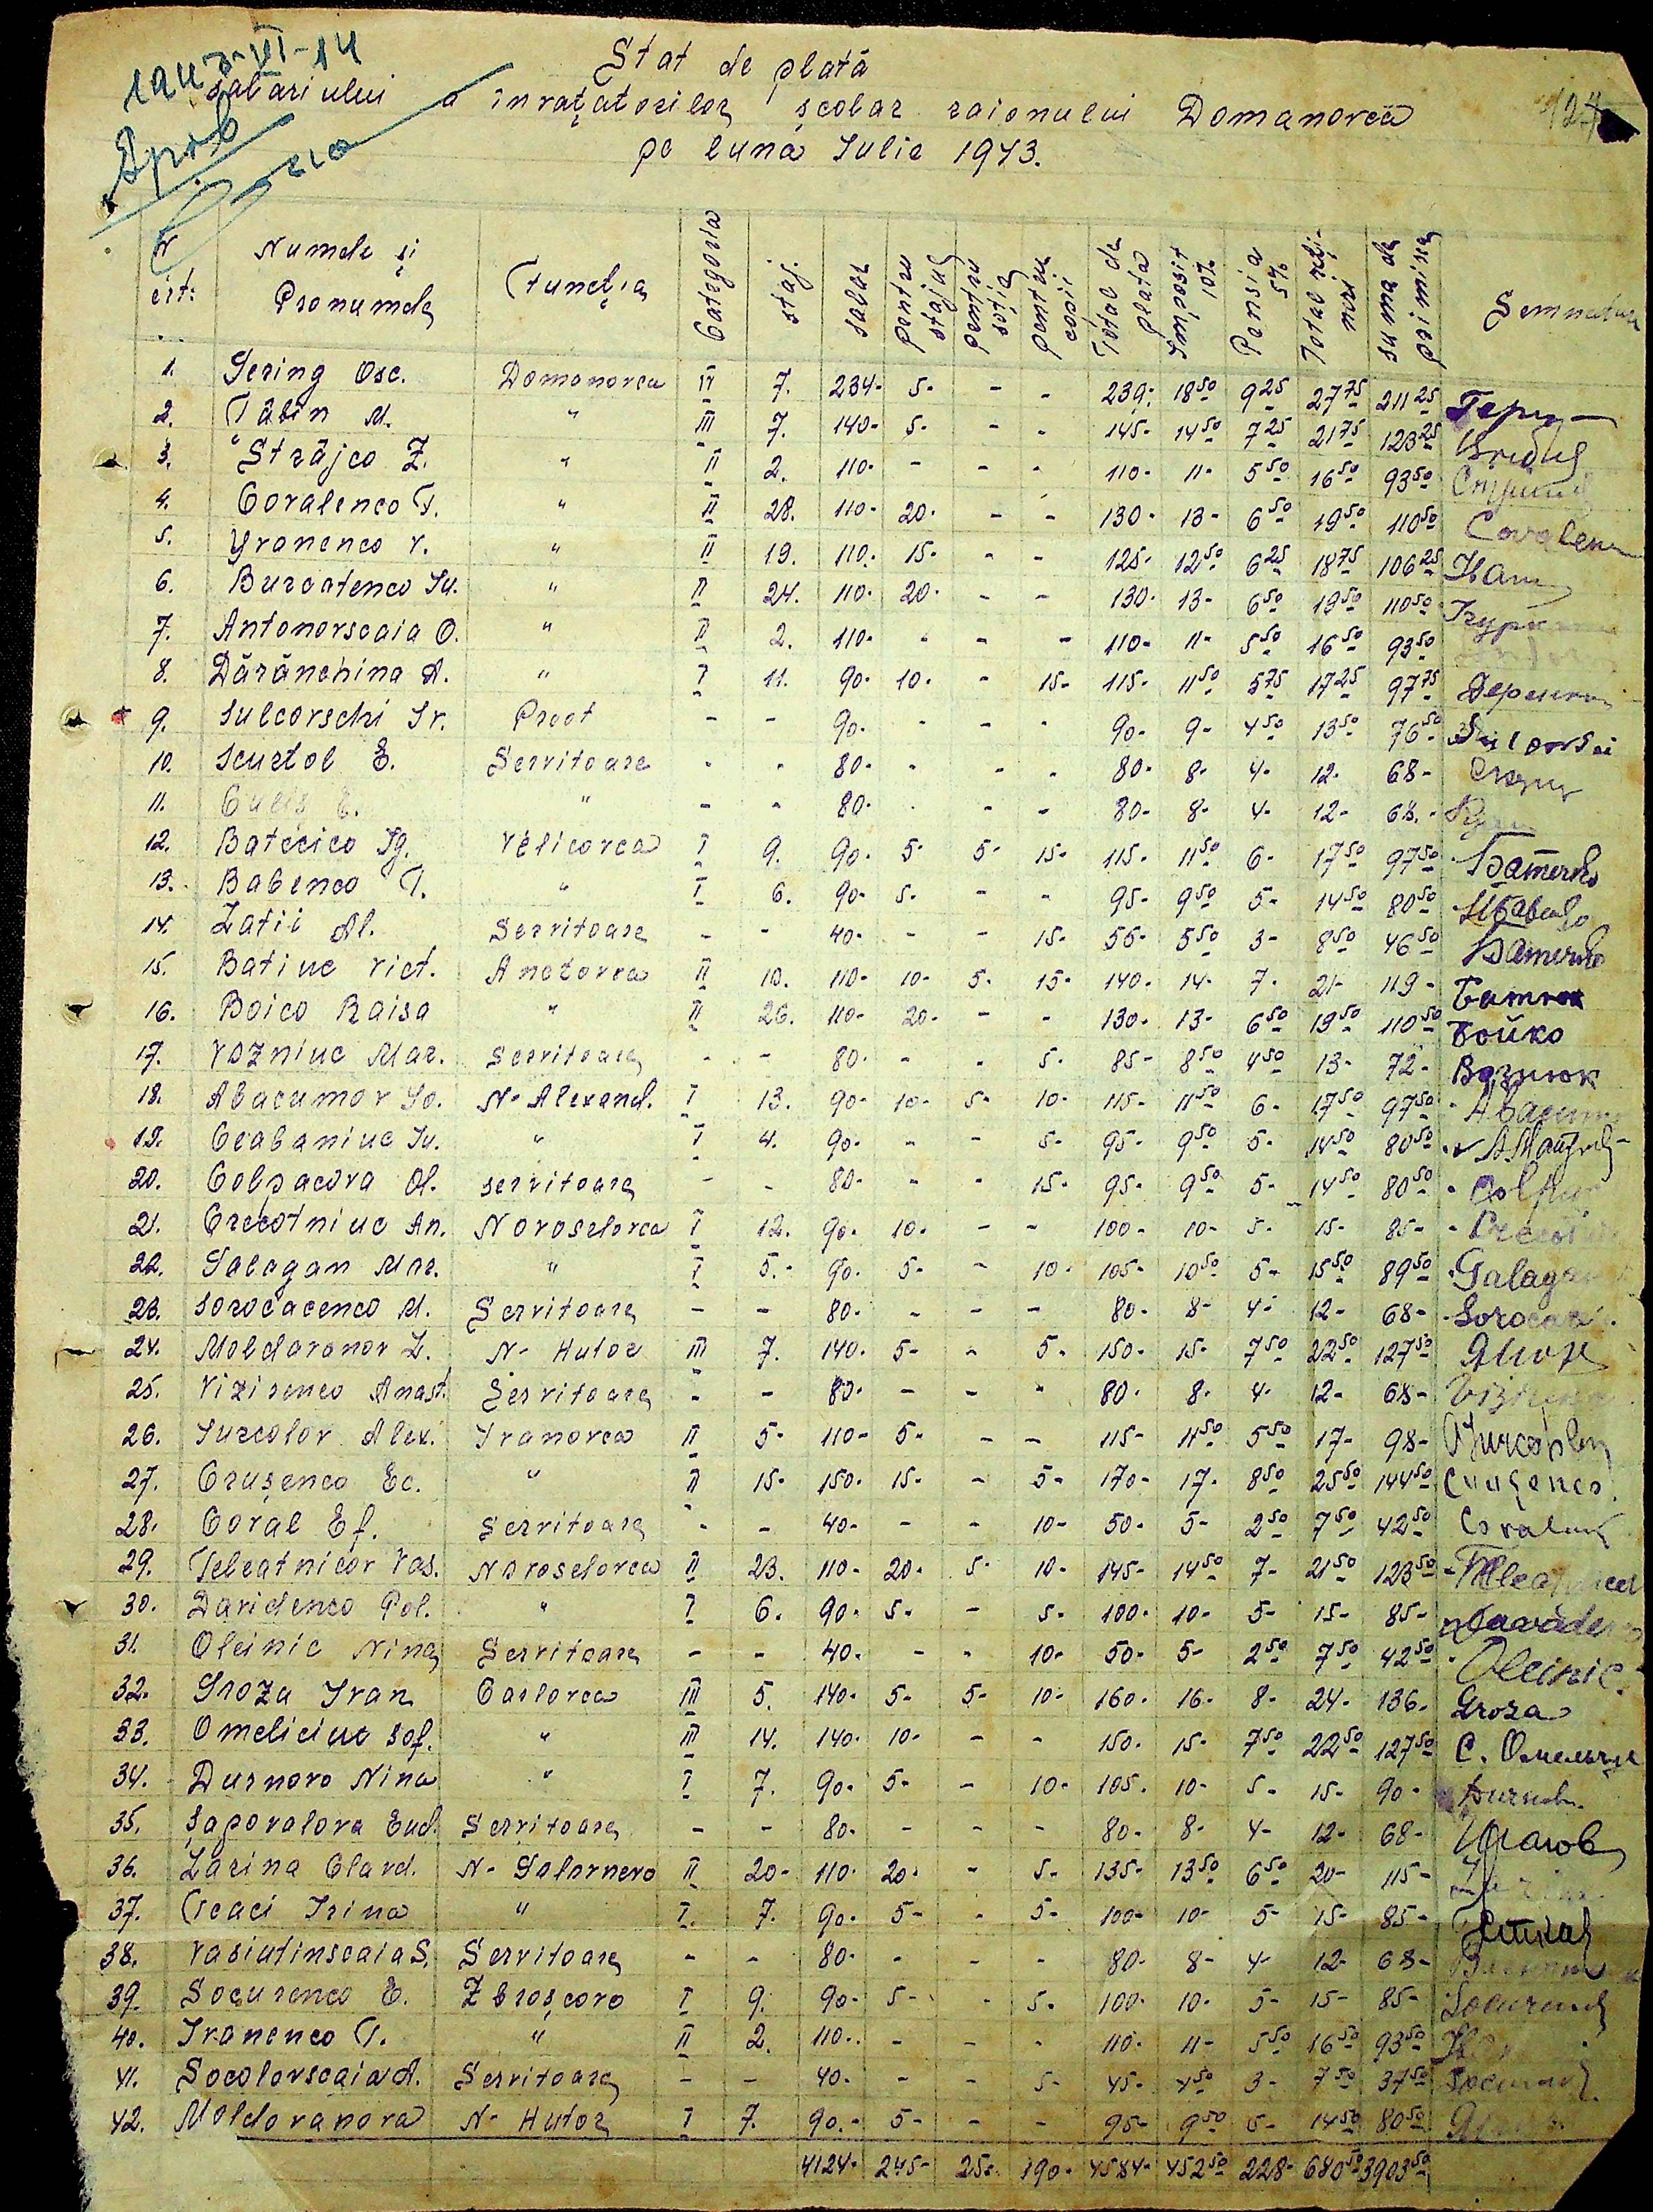 Stat de plată
salariului a învațatorilor școlar raionului Domanovca
pe luna Iulie 1943.
N crt: Numele și Pronumele Funcția Categoria staj. salar pentru stajul pentru soția pentru copii Total de plata Imposit 10% Pensia 5% Total reți-neri suma de primire Semnatura
1. Gering Osc. Domanovca IV 7. 234- 5- - - 239- 18 50 9 25 27 75 211 25
2. Tâbin M. " III 7. 140- 5- - - 145- 14 50 7 25 21 75 123 25
3. Străjco Z. " II 2. 110- - - - 110- 11- 5 50 16 50 93 50
4. Covalenco T. " II 28. 110- 20- - - 130- 13- 6 50 19 50 110 50 Covalen
5. Yvanenco V. " II 19. 110- 15- - - 125- 12 50 6 25 18 75 106 25
6. Burcatenco Iv. " II 24. 110- 20- - - 130- 13- 6 50 19 50 110 50
7. Antonovscaia O. " II 2. 110- - - - 110- 11- 5 50 16 50 93 50
8. Dărănchina A. " I 11. 90- 10- - 15- 115- 11 50 5 75 17 25 97 75
9. Sulcovschi Iv. Preot - - 90- - - - 90- 9- 4 50 13 50 76 50
10. Scurtol E. Servitoare - - 80- - - - 80- 8- 4- 12- 68-
11. Culiș E. " - - 80- - - - 80- 8- 4- 12- 68-
12. Batecico Ig. Velicovca I 9. 90- 5- 5- 15- 115- 11 50 6- 17 50 97 50
13. Babenco T. " I 6. 90- 5- - - 95- 9 50 5- 14 50 80 50
14. Zatii Al. Servitoare - - 40- - - 15- 55- 5 50 3- 8 50 46 50
15. Batiuc Vict. Anetovca II 10. 110- 10- 5- 15- 140- 14- 7- 21- 119- Батюк
16. Boico Raisa " II 26. 110- 20- - - 130- 13- 6 50 19 50 110 50 Бойко
17. Vozniuc Mar. Servitoare - - 80- - - 5- 85- 8 50 4 50 13- 72- Вознюк
18. Abacumov Io. N-Alexand. I 13. 90- 10- 5- 10- 115- 11 50 6- 17 50 97 50
19. Crabaniuc Iv. " I 4. 90- - - 5- 95- 9 50 5- 14 50 80 50
20. Colpacova Ol. servitoare - - 80- - - 15- 95- 9 50 5- 14 50 80 50
21. Crecotniuc An. Novoselovca I 12. 90- 10- - - 100- 10- 5- 15- 85-
22. Galagan Mar. " I 5- 90- 5- - 10- 105- 10 50 5- 15 50 89 50 Galagan
23. Sorocacenco M. Servitoare - - 80- - - - 80- 8- 4- 12- 68-
24. Moldavanov Z. N-Hutor III 7. 140- 5- - 5- 150- 15- 7 50 22 50 127 50
25. Vizirenco Anast. Servitoare - - 80- - - - 80- 8- 4- 12- 68-
26. Surcolov Alex. Ivanovca II 5- 110- 5- - - 115- 11 50 5 50 17- 98-
27. Crușenco Ec. " II 15- 150- 15- - 5- 170- 17- 8 50 25 50 144 50 Crușenco.
28. Coval Ef. Servitoare - - 40- - - 10- 50- 5- 2 50 7 50 42 50
29. Teleatnicov Vas. Novoselovca II 23. 110- 20- 5- 10- 145- 14 50 7- 21 50 123 50
30. Davidenco Pol. " I 6. 90- 5- - 5- 100- 10- 5- 15- 85-
31. Oleinic Nina Servitoare - - 40- - - 10- 50- 5- 2 50 7 50 42 50 Oleinic.
32. Groza Ivan Carlovca III 5. 140- 5- 5- 10- 160- 16- 8- 24- 136- Groza
33. Omeliciuc Sof. " III 14. 140- 10- - - 150- 15- 7 50 22 50 127 50
34. Durnovo Nina " I 7. 90- 5- - 10- 105- 10- 5- 15- 90-
35. Șapovalova Eud. Servitoare - - 80- - - - 80- 8- 4- 12- 68-
36. Zarina Clavd. N-Galovnevo II 20- 110- 20- - 5- 135- 13 50 6 50 20- 115-
37. Tcaci Irina " I. 7. 90- 5- - 5- 100- 10- 5- 15- 85-
38. Vasiutinscaia S. Servitoare - - 80- - - - 80- 8- 4- 12- 68-
39. Socurenco E. Zbroșcovo I 9. 90- 5- - 5- 100- 10- 5- 15- 85-
40. Ivanenco T. " II 2. 110- - - - 110- 11- 5 50 16 50 93 50
41. Socolovscaia A. Servitoare - - 40- - - 5- 45- 4 50 3- 7 50 37 50
42. Moldovanova N-Hutor I 7. 90- 5- - - 95- 9 50 5- 14 50 80 50
4124- 245- 25- 190- 4584- 452 50 228- 680 50 3903 50